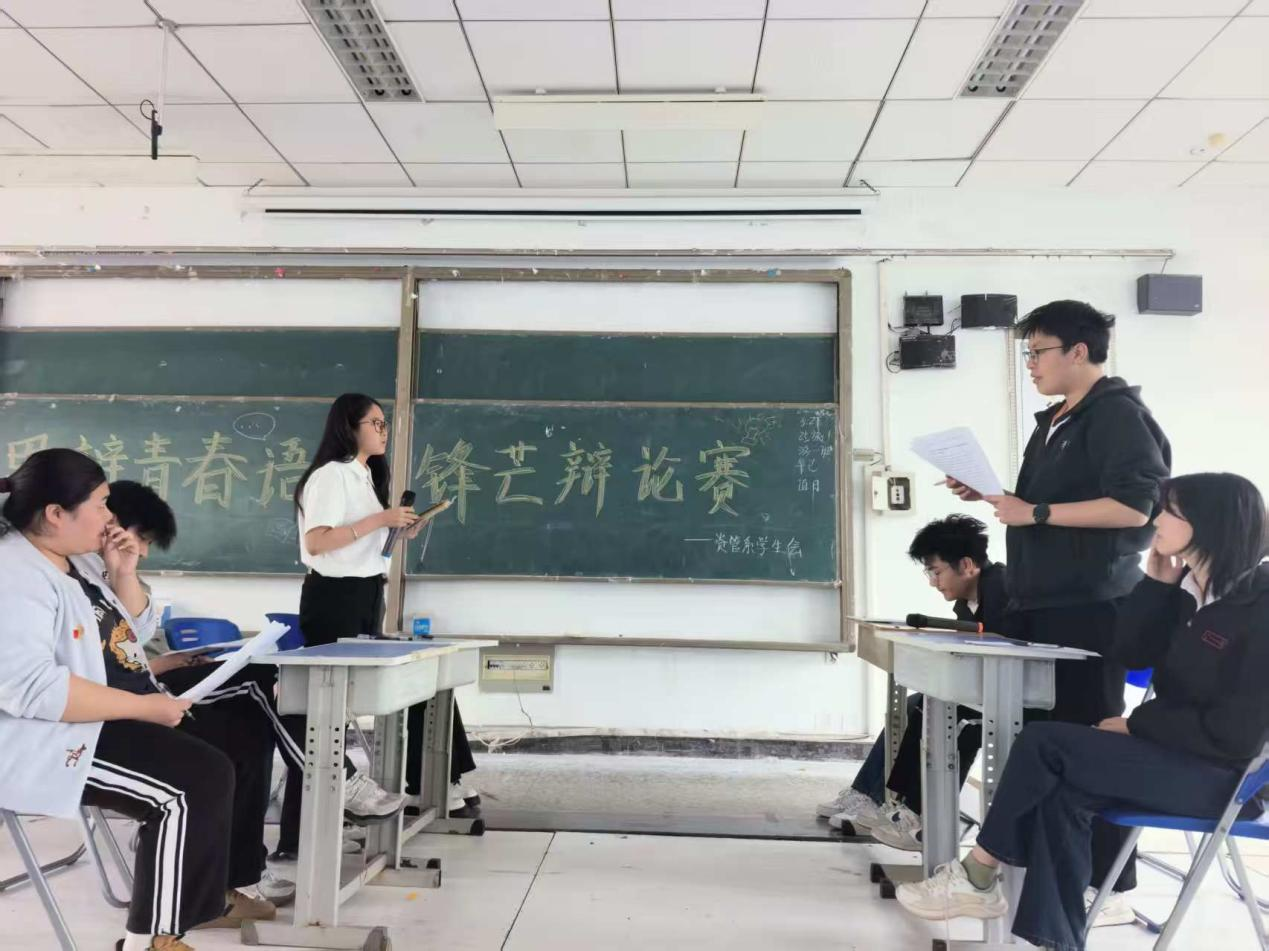 思辩青春语 锋芒辩论赛
——资管系学生会
值日